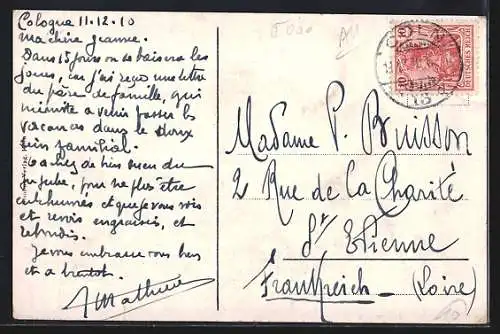 Cologne 11.12.10
Ma chère Jeanne.
Dans 15 jours on se baisera les
joues, car j'ai reçu une lettre
du père de famille, qui
m'invite à venir passer les
vacances dans le doux
sein familial.
du
jujube, pour ne plus être
enrhumées et que je vous vois
et revois engraissées, et
rebondies.
Je vous embrasse tous bien
et à bientôt.
Mathieu
CÖLN
DEUTSCHES REICH
10
Madame P. Buisson
2 Rue de la Charité
St Etienne
Frankreich (Loire)